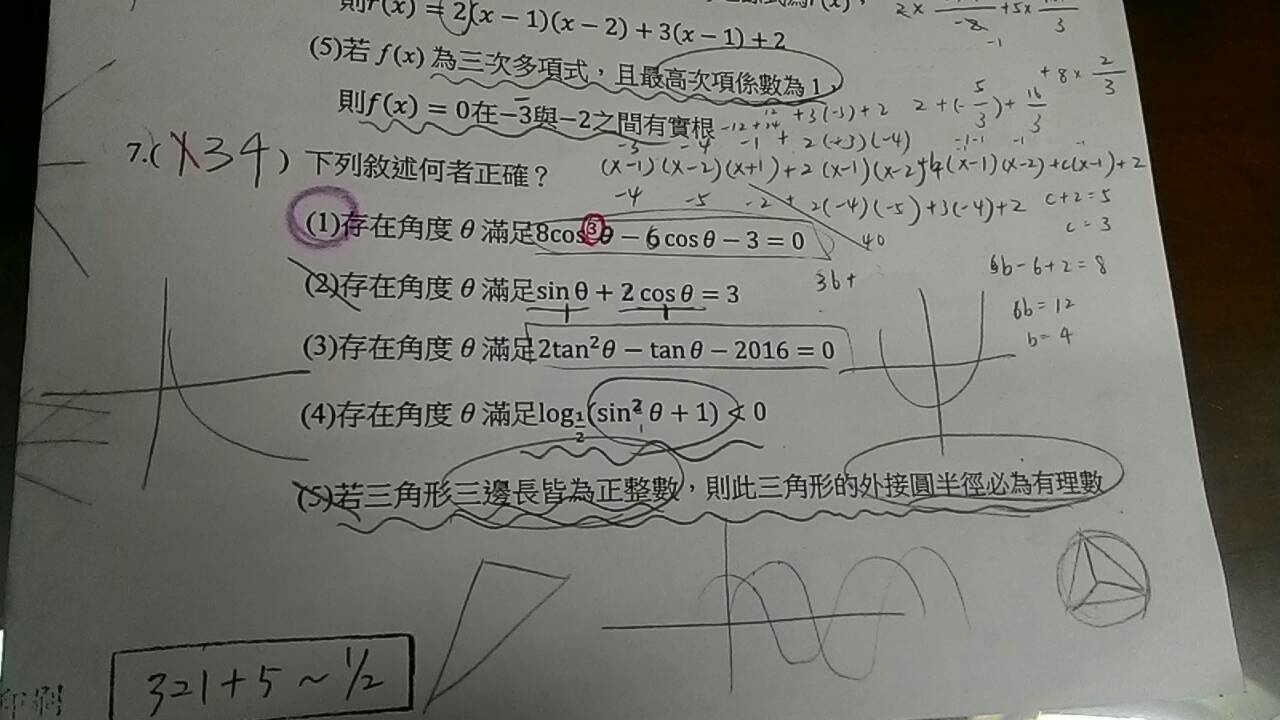 則r(x) = 2(x − 1)(x − 2) + 3(x − 1) + 2
(5)若 f(x) 為三次多項式，且最高次項係數為 1，
則f(x) = 0在−3與−2之間有實根
7.( X34 ) 下列敘述何者正確？
(1)存在角度 θ 滿足8cos³θ − 6cosθ − 3 = 0
(2)存在角度 θ 滿足sin θ + 2 cos θ = 3
(3)存在角度 θ 滿足2tan²θ − tan θ − 2016 = 0
(4)存在角度 θ 滿足log½(sin² θ + 1) < 0
(5)若三角形三邊長皆為正整數，則此三角形的外接圓半徑必為有理數
+ 8 × 2/3
2 + (-5/3) + 16/3
+3(-3)+2
-12+24
+ 2(+3)(-4)
-3 -4 -1
(x-1)(x-2)(x+1)+2(x-1)(x-2)+b(x-1)(x-2)+c(x-1)+2
-4 -5 -2 + 2(-4)(-5)+3(-4)+2
40
c+2=5
c=3
3b+
6b-6+2=8
6b=12
b=4
321+5~1/2
印刷